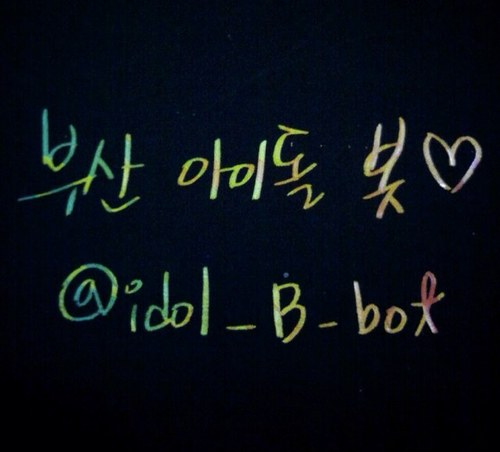 부산 아이돌 봇♡
@idol_B_bot